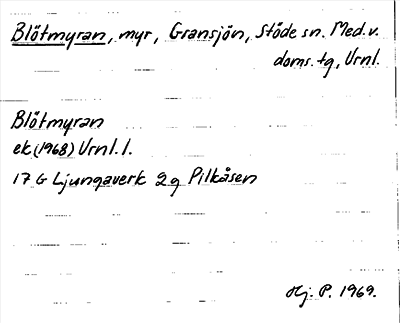 Blötmyran, myr, Gransjön, Stöde sn. Med. v.
doms. tg, Vrnl.
Blötmyran
ek. (1968) Vrnl. l.
17 G Ljungaverk 2 g Pilkåsen
Hj. P. 1969.